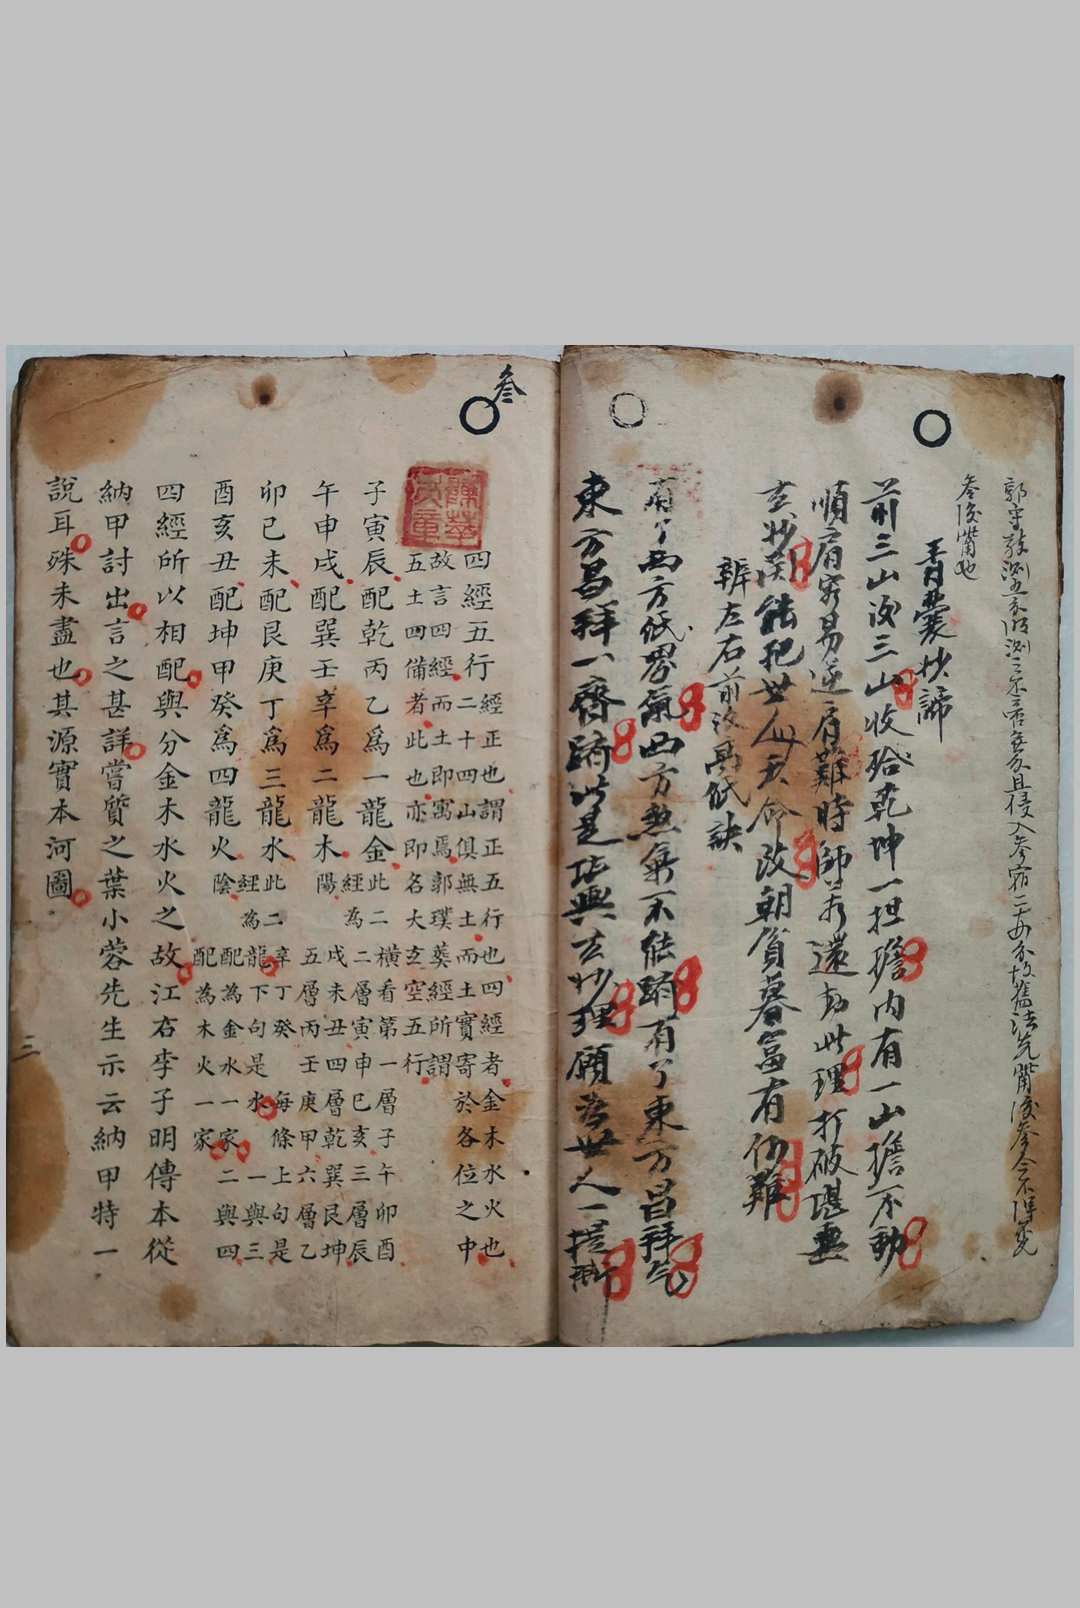 郭守敬測五分測二示三否無分且侵入參宿二十五分故舊法先觜後參今不得变
參後觜也
青囊妙諦
前三山後三山收拾乾坤一担擔内有一山擔不動
順肩容易逆肩難時師若還劫此理打破堪輿
玄妙関能把世人奪天命改朝貧暮富有何難
辨左右前後高低訣
有了西方低界氣西方煞氣不能蹄有了東方昌拜气
東方昌拜一齊蹄此是堪輿玄妙理願為世人一提斯
叁
四經五行
經正也謂正五行也四經者金木水火也
二十四山俱無土而土實寄於各位之中
故言四經而土即寓焉郭璞葬經所謂
五土四備者此也亦即名大玄空五行
子寅辰配乾丙乙爲一龍金
此二經為陽
橫看第一層子午卯酉
二層寅申巳亥三層辰
戌未丑四層乾巽艮坤
五層丙壬庚甲六層乙
午申戌配巽壬辛爲二龍木
卯巳未配艮庚丁爲三龍水
此二經為陰
辛丁癸 每條上句是
龍下句是水 一與三
配為金水一家二與四
配為木火一家
酉亥丑配坤甲癸爲四龍火
四經所以相配與分金木水火之故江右李子明傳本從
納甲討出言之甚詳嘗質之葉小蓉先生示云納甲特一
說耳殊未盡也其源實本河圖
三